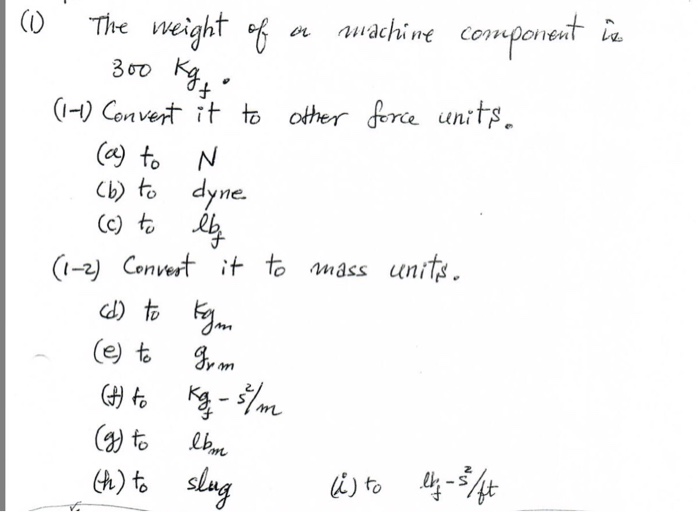 (1) The weight of a machine component is
300 kgf.
(1-1) Convert it to other force units.
(a) to N
(b) to dyne
(c) to lbf
(1-2) Convert it to mass units.
(d) to kgm
(e) to grm
(f) to kgf-s²/m
(g) to lbm
(h) to slug (i) to lbf-s²/ft